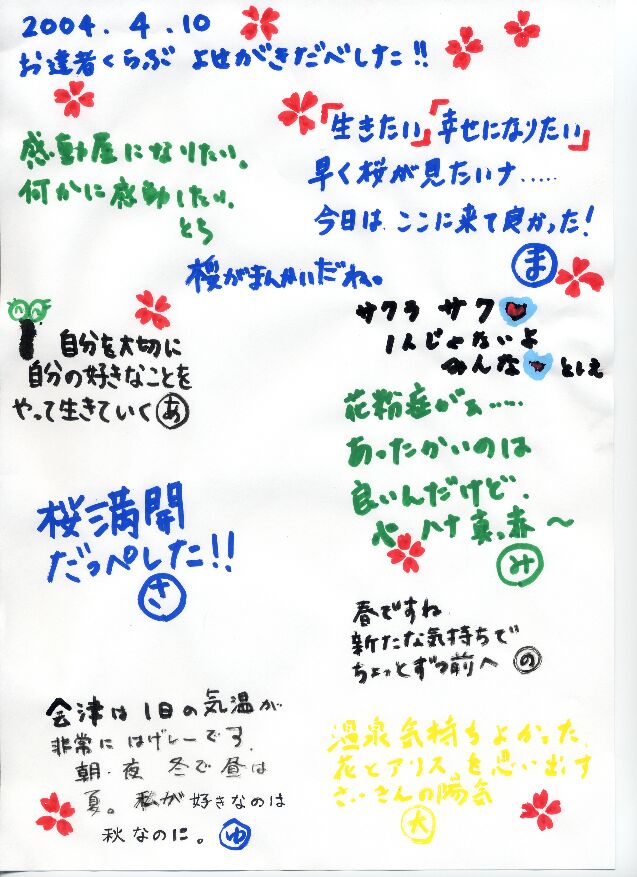 2004.4.10
お達者くらぶ よせがきだべした!!
感動屋になりたい。
何かに感動したい。
とち
「生きたい」「幸せになりたい」
早く桜が見たいナ.....
今日は ここに来て良かった!
ま
桜がまんかいだね。
自分を大切に
自分の好きなことを
やって生きていく あ
サクラ サク
1人じゃないよ
みんな としえ
花粉症がぁ.....
あったかいのは
良いんだけど、
ハナ真っ赤〜
み
桜満開
だっぺした!!
さ
春ですね
新たな気持ちで
ちょっとずつ前へ の
会津は1日の気温が
非常にはげしーです。
朝・夜 冬で昼は
夏。私が好きなのは
秋なのに。 ゆ
温泉気持ちよかった。
花とアリスを思い出す
さいきんの陽気
大